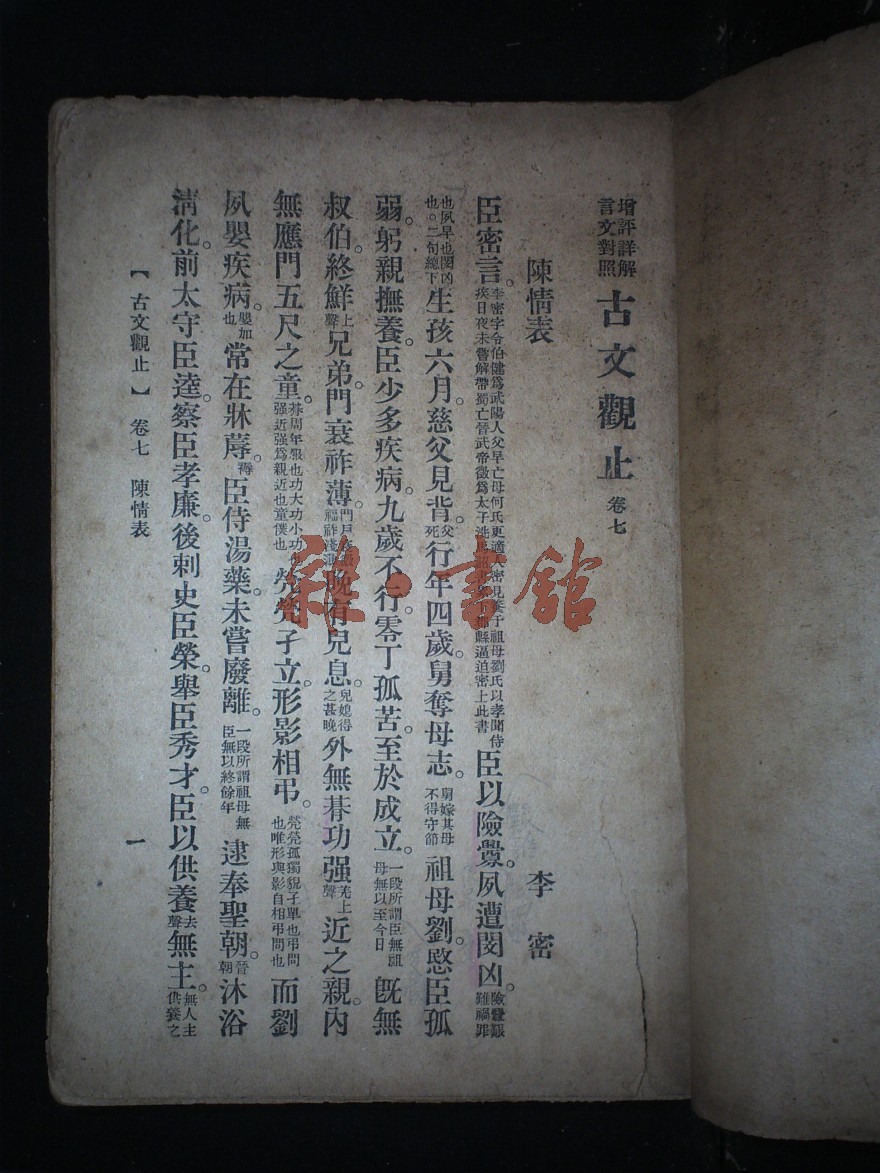 增評詳解
言文對照
古文觀止 卷七
陳情表 李密
臣密言。李密字令伯犍爲武陽人父早亡母何氏更適人密見養于祖母劉氏以孝聞侍疾日夜未嘗解帶蜀亡晉武帝徵爲太子洗馬 縣逼迫密上此書 臣以險釁。夙遭閔凶。險釁艱難禍罪
也夙早也閔凶也。二句總下 生孩六月。慈父見背。父死 行年四歲。舅奪母志。舅嫁其母不得守節 祖母劉。愍臣孤
弱。躬親撫養。臣少多疾病。九歲不行。零丁孤苦。至於成立。一段所謂臣無祖母無以至今日 旣無
叔伯。終鮮上聲 兄弟。門衰祚薄。晚有兒息。兒媳得之甚晚 外無朞功强羌上聲 近之親。內
無應門五尺之童。朞周年服也功大功小功也强近强爲親近也童僕也 煢煢孑立。形影相弔。煢煢孤獨貌孑單也弔問也唯形與影自相弔問也 而劉
夙嬰疾病。嬰加也 常在牀蓐。褥 臣侍湯藥。未嘗廢離。一段所謂祖母無臣無以終餘年 逮奉聖朝。晉朝 沐浴
清化。前太守臣逵。察臣孝廉。後刺史臣榮。舉臣秀才。臣以供養去聲 無主。無人主供養之
【古文觀止】 卷七 陳情表 一
雜·書館